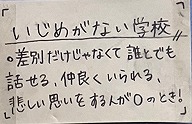 「いじめがない学校」
○差別だけじゃなくて誰とでも
話せる、仲良くいられる、
悲しい思いをする人が0のとき!